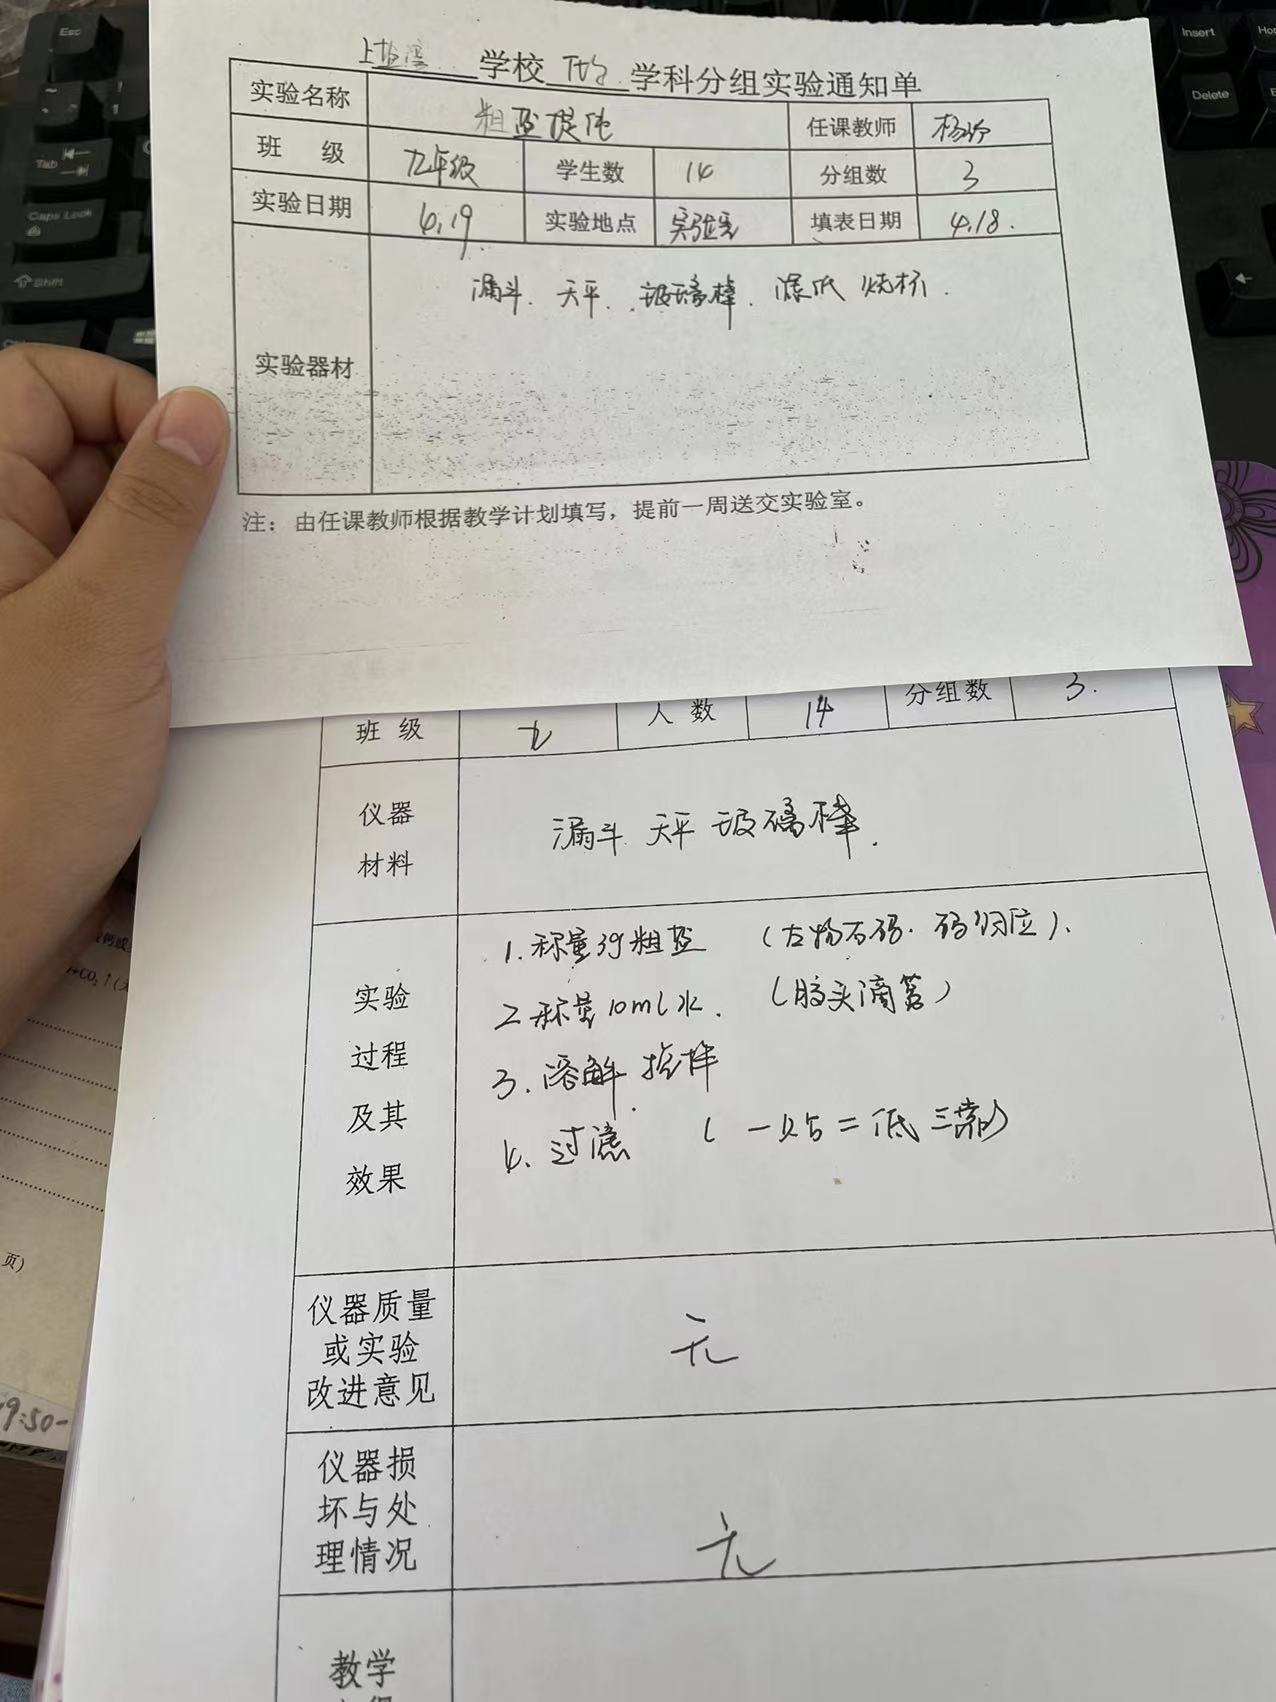 学校 化学 学科分组实验通知单
实验名称 粗盐提纯 任课教师
班 级 九年级 学生数 14 分组数 3
实验日期 4.19 实验地点 实验室 填表日期 4.18.
实验器材 漏斗. 天平. 玻璃棒. 滤纸 烧杯.
注：由任课教师根据教学计划填写，提前一周送交实验室。
班 级 九 人 数 14 分组数 3.
仪器材料 漏斗 天平 玻璃棒.
实验过程及其效果
1. 称量3g粗盐 (左物右码. 码归位).
2 称量10ml水. (胶头滴管)
3. 溶解 搅拌
4. 过滤 ( 一贴二低三靠)
仪器质量或实验改进意见 无
仪器损坏与处理情况 无
教学
+CO₂↑
页)
9:50-
Esc
Tab
Caps Lock
Shift
Insert
Delete